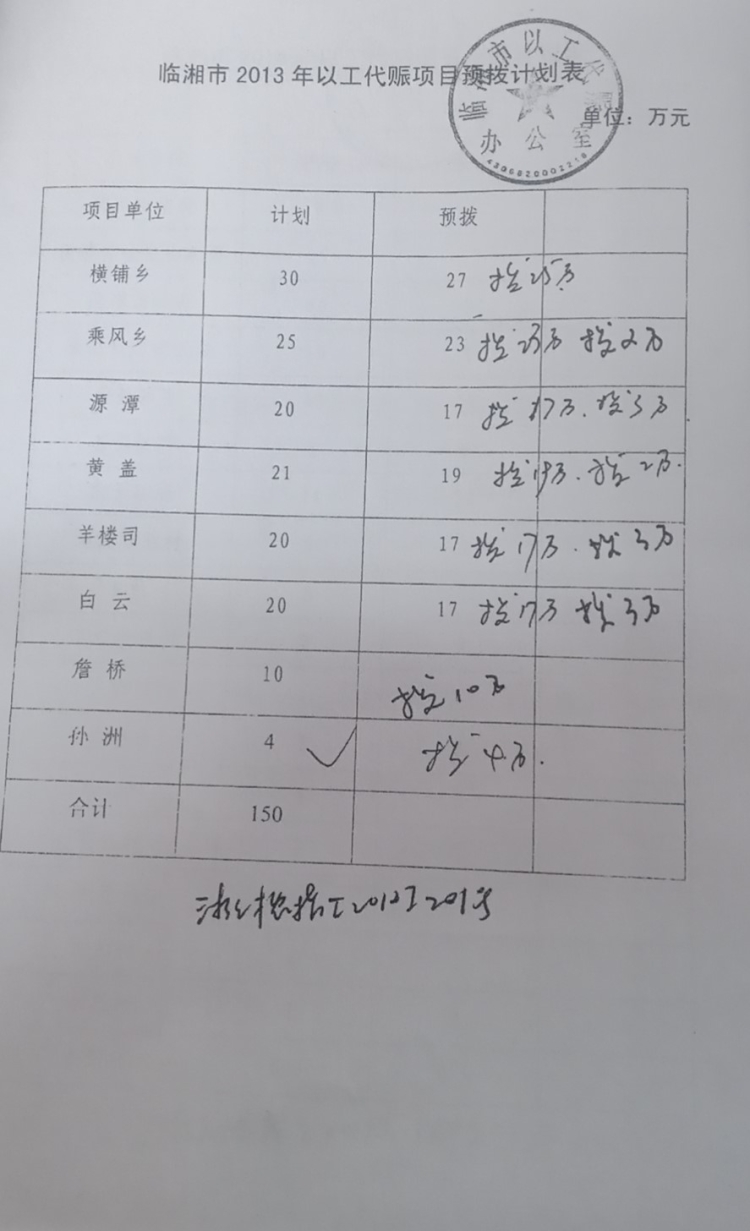 临湘市 2013 年以工代赈项目预拨计划表
临湘市以工代赈
办公室
4306820002218
单位：万元
项目单位 计划 预拨
横铺乡 30 27 拨25万
乘风乡 25 23 拨23万 拨2万
源潭 20 17 拨17万. 拨3万
黄盖 21 19 拨19万. 拨2万.
羊楼司 20 17 拨17万. 拨3万
白云 20 17 拨17万 拨3万
詹桥 10 拨10万
孙洲 4 ✓ 拨4万.
合计 150
[2012]201号